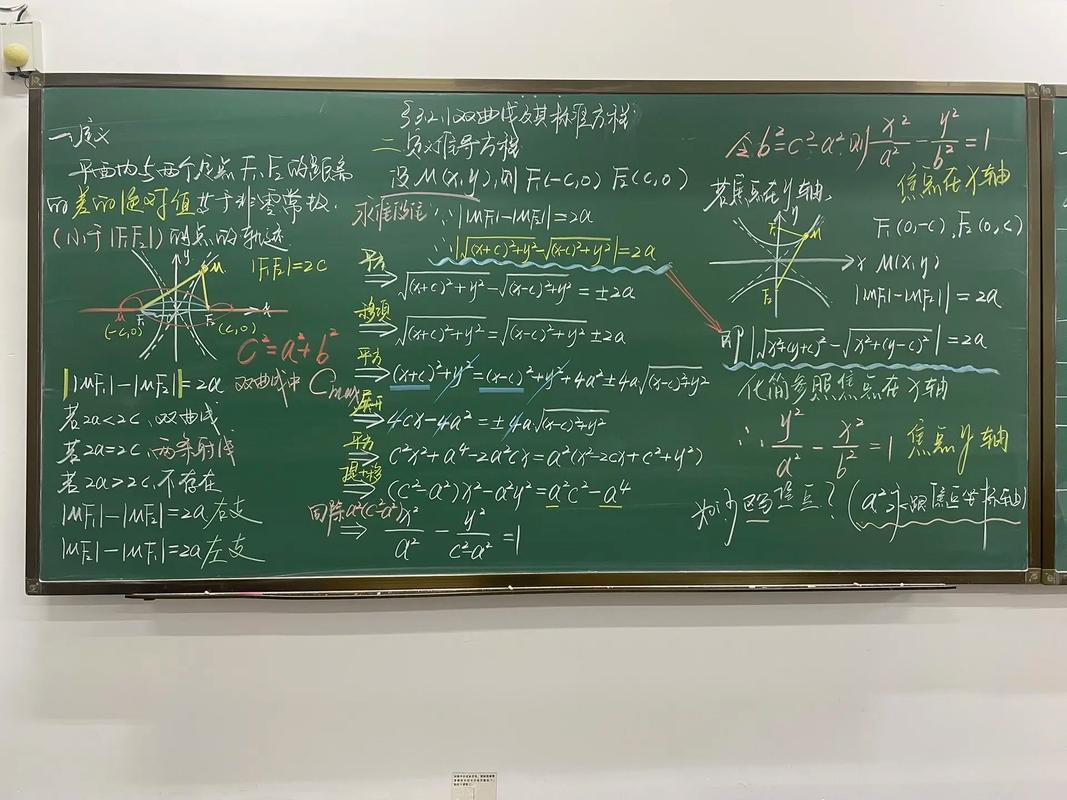 §3.2.1双曲线及其标准方程
一.定义
平面内与两个定点F₁,F₂的距离
的差的绝对值等于非零常数.
(小于|F₁F₂|)的点的轨迹
y
M
|F₁F₂|=2c
F₁
F₂
x
(-c,0)
(c,0)
c²=a²+b²
双曲线中Cmax
||MF₁|-|MF₂||=2a
若2a<2c,双曲线
若2a=2c,两条射线
若2a>2c,不存在
|MF₁|-|MF₂|=2a右支
|MF₂|-|MF₁|=2a左支
二.定义推导方程
设M(x,y),则F₁(-c,0) F₂(c,0)
∵||MF₁|-|MF₂||=2a
∴|√(x+c)²+y²-√(x-c)²+y²|=2a
平方
⇒√(x+c)²+y²-√(x-c)²+y²=±2a
移项
⇒√(x+c)²+y²=√(x-c)²+y²±2a
平方
⇒(x+c)²+y²=(x-c)²+y²+4a²±4a√(x-c)²+y²
展开
⇒4cx-4a²=±4a√(x-c)²+y²
平方
⇒c²x²+a⁴-2a²cx=a²(x²-2cx+c²+y²)
⇒(c²-a²)x²-a²y²=a²c²-a⁴
同除a²(c²-a²)
⇒x²/a²-y²/(c²-a²)=1
令b²=c²-a²,则x²/a²-y²/b²=1
焦点在x轴
若焦点在y轴,
y
F₁
M
F₂
x
F₁(0,-c),F₂(0,c)
M(x,y)
||MF₁|-|MF₂||=2a
即|√x²+(y+c)²-√x²+(y-c)²|=2a
化简参照焦点在x轴
∴y²/a²-x²/b²=1 焦点y轴